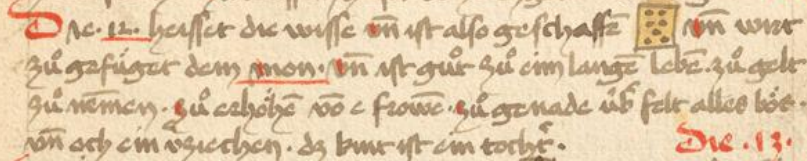 Die .12. heisset die wisse vn̄ ist also geschaffē vn̄ wirt
zů gefüget dem mon· vn̄ ist gůt zů eim langē lebē. zů gelt
zů nemen. zů erhöhē vō e frowē. zů genade üb̾ felt alles bös
vn̄ och ein v̾ziechen. dz kint ist ein tocht̾.
Die .13.